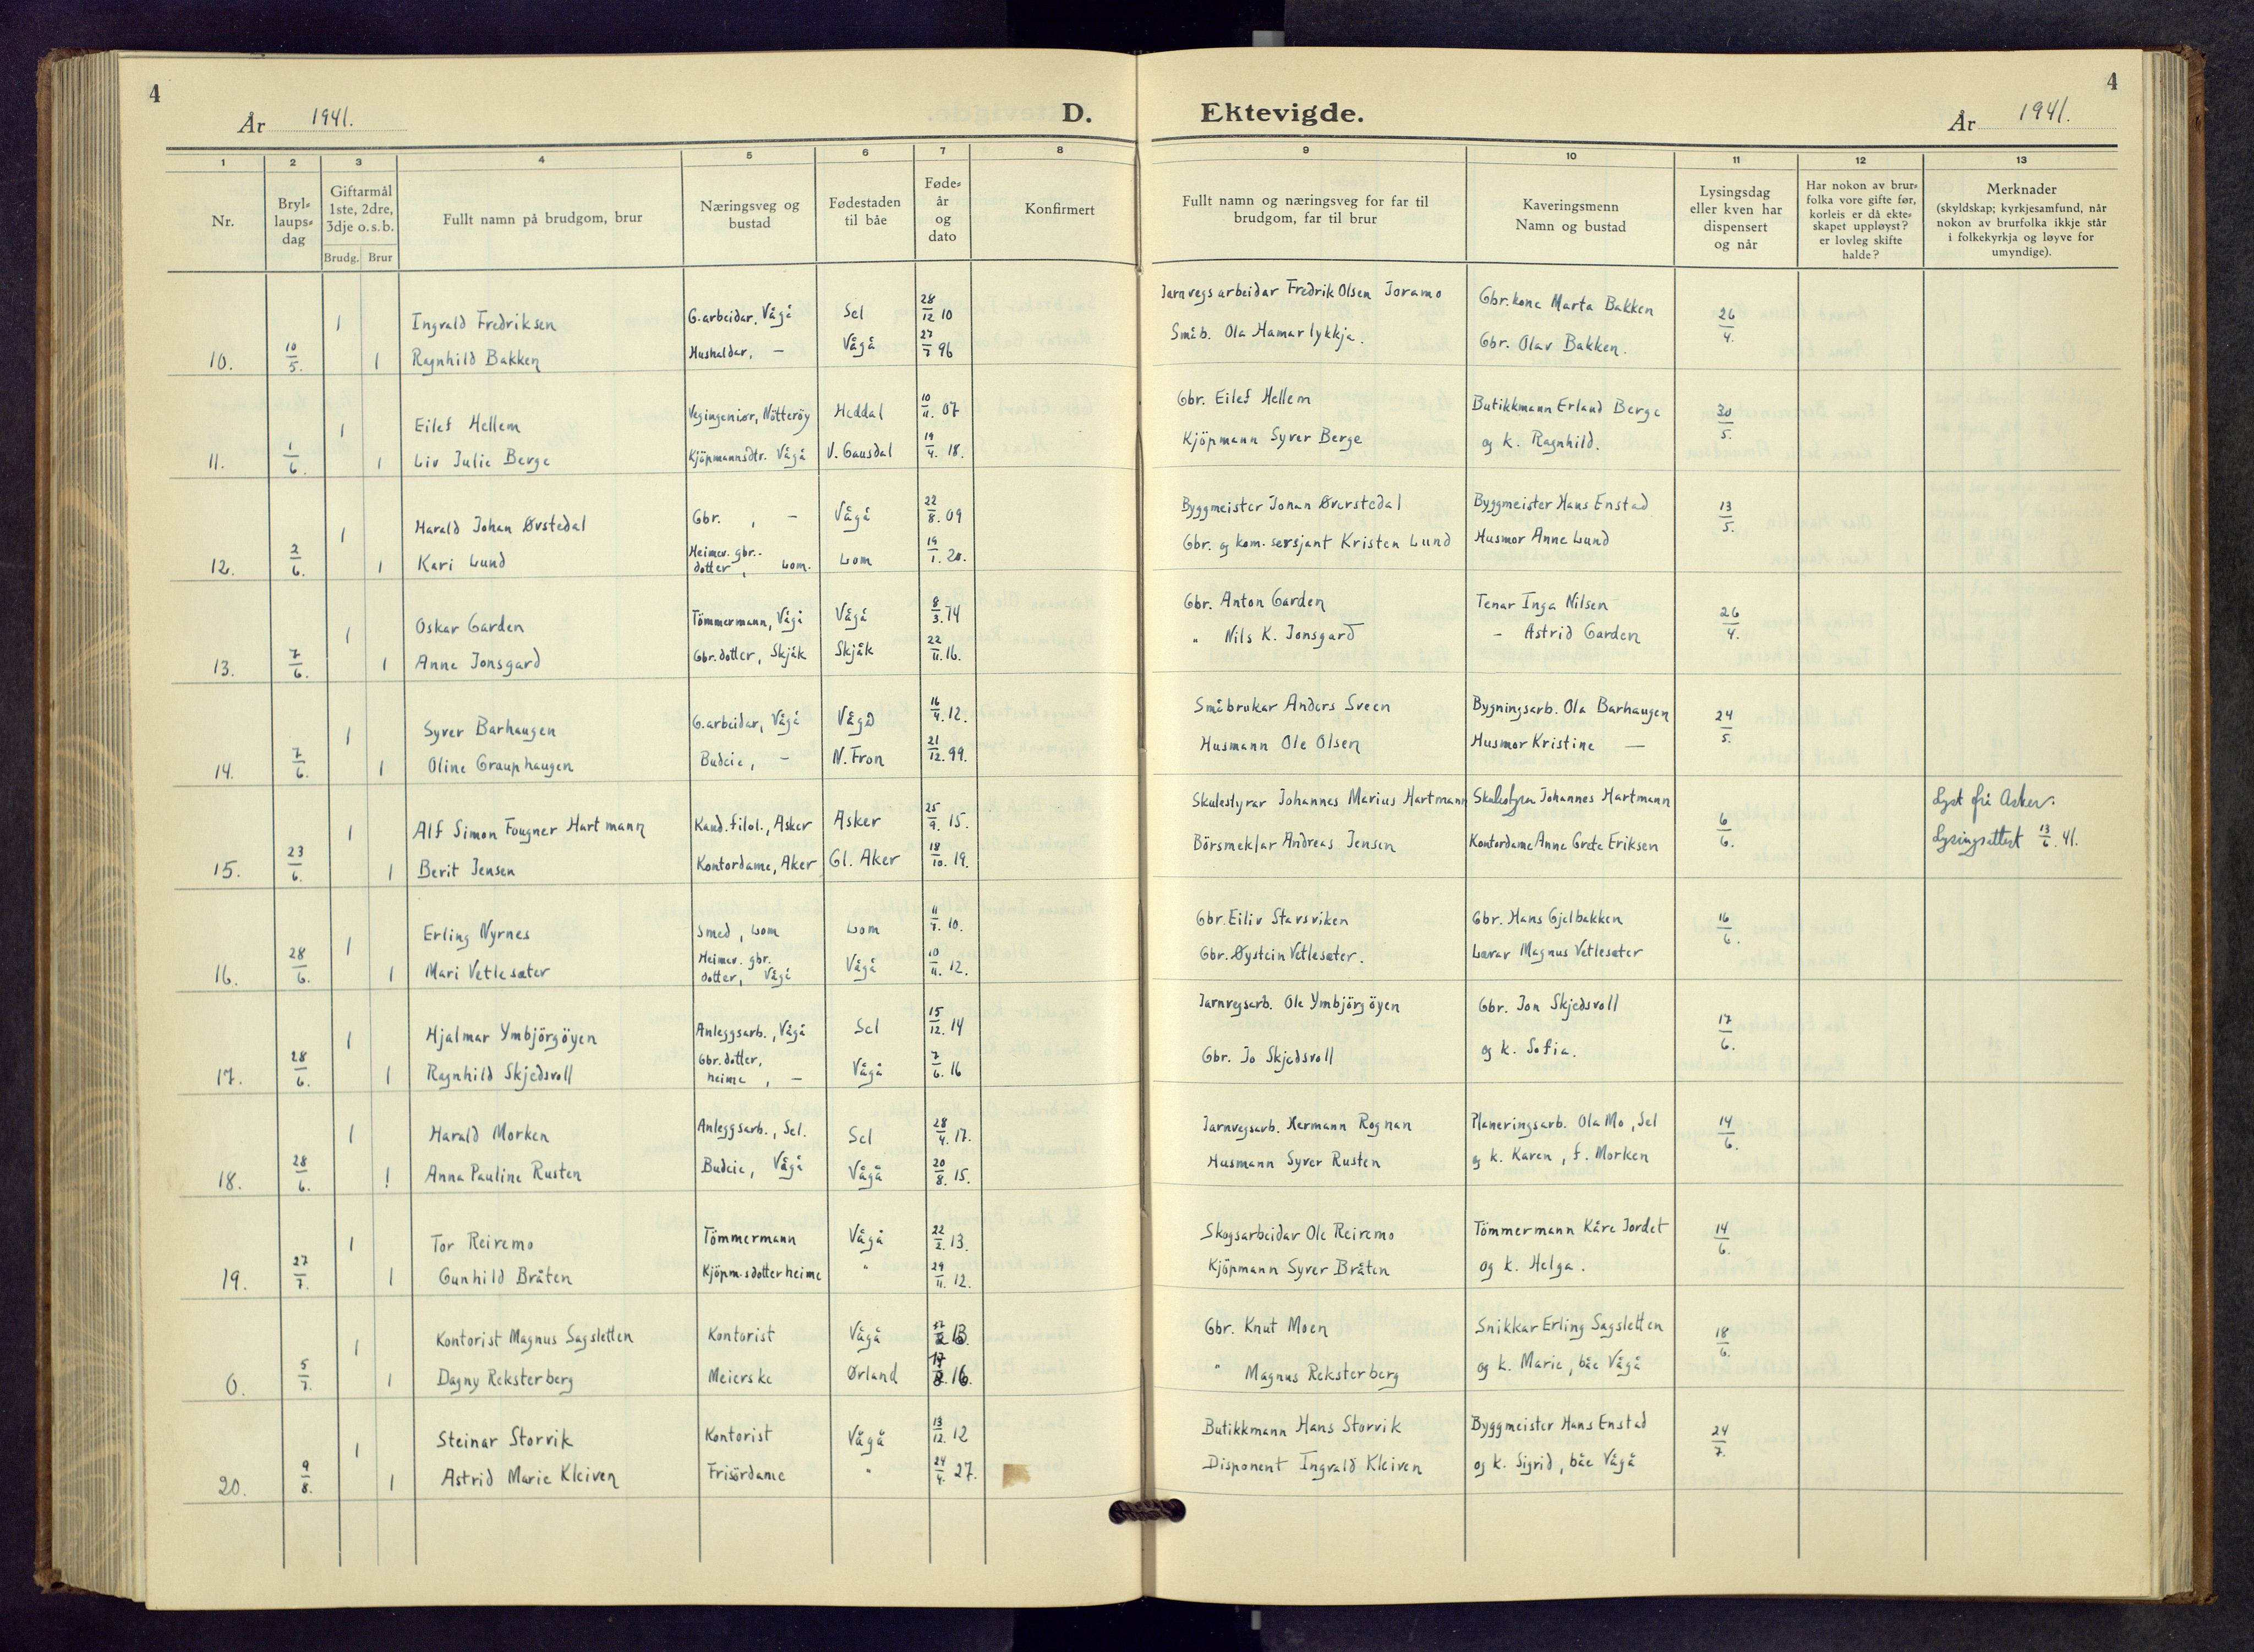 4
År 1941.
D.
Ektevigde.
År 1941.
4
1 2 3 4 5 6 7 8 9 10 11 12 13
Nr.
Bryl=
laups=
dag
Giftarmål
1ste, 2dre,
3dje o.s.b.
Brudg. Brur
Fullt namn på brudgom, brur
Næringsveg og
bustad
Fødestaden
til båe
Føde=
år
og
dato
Konfirmert
Fullt namn og næringsveg for far til
brudgom, far til brur
Kaveringsmenn
Namn og bustad
Lysingsdag
eller kven har
dispensert
og når
Har nokon av brur=
folka vore gifte før,
korleis er då ekte=
skapet uppløyst?
er lovleg skifte
halde?
Merknader
(skyldskap; kyrkjesamfund, når
nokon av brurfolka ikkje står
i folkekyrkja og løyve for
umyndige).
1 Ingvald Fredriksen G.arbeidar, Vågå Sel 28/12 10 Jarnvegsarbeidar Fredrik Olsen Joramo Gbr.kone Marta Bakken 26/4.
10. 10/5. 1 Ragnhild Bakken Hushaldar, – Vågå 27/7 96 Småb. Ola Hamarlykkja. Gbr. Olav Bakken.
1 Eilef Hellem Vegingeniør, Nötteröy Heddal 10/11. 07 Gbr. Eilef Hellem Butikkmann Erland Berge 30/5.
11. 1/6. 1 Liv Julie Berge Kjöpmannsdtr. Vågå V. Gausdal 19/4. 18. Kjöpmann Syver Berge og k. Ragnhild.
1 Harald Johan Øvstedal Gbr. , – Vågå 22/8. 09 Byggmeister Johan Øverstedal Byggmeister Hans Enstad 13/5.
12. 2/6. 1 Kari Lund Heimev. gbr.-
dotter, Lom. Lom 19/1. 20. Gbr. og kom. sersjant Kristen Lund Husmor Anne Lund
1 Oskar Garden Tömmermann, Vågå Vågå 8/3. 14 Gbr. Anton Garden Tenar Inga Nilsen 26/4.
13. 7/6. 1 Anne Jonsgard Gbr.dotter, Skjåk Skjåk 22/11. 16. " Nils K. Jonsgard – Astrid Garden
1 Syver Barhaugen G.arbeidar, Vågå Vågå 16/4. 12. Småbrukar Anders Sveen Bygningsarb. Ola Barhaugen 24/5.
14. 7/6. 1 Oline Grauphaugen Budeie, – N. Fron 21/12. 99. Husmann Ole Olsen Husmor Kristine –
1 Alf Simon Fougner Hartmann Kand.filol., Asker Asker 25/9. 15. Skulestyrar Johannes Marius Hartmann Skulestyrar Johannes Hartmann 6/6. Lyst frå Asker.
15. 23/6. 1 Berit Jensen Kontordame, Aker Gl. Aker 18/10. 19. Börsmeklar Andreas Jensen Kontordame Anne Grete Eriksen Lysingsattest 13/6. 41.
1 Erling Nyrnes Smed, Lom Lom 11/7. 10. Gbr. Eiliv Stavsviken Gbr. Hans Gjelbakken 16/6.
16. 28/6. 1 Mari Vetlesæter Heimev. gbr.
dotter, Vågå Vågå 10/11. 12. Gbr. Øystein Vetlesæter. Lærar Magnus Vetlesæter
1 Hjalmar Ymbjörgöyen Anleggsarb., Vågå Sel 15/12. 14 Jarnvegsarb. Ole Ymbjörgöyen Gbr. Jon Skjedsvoll 17/6.
17. 28/6. 1 Ragnhild Skjedsvoll Gbr.dotter,
heime, – Vågå 7/6. 16 Gbr. Jo Skjedsvoll og k. Sofia.
1 Harald Morken Anleggsarb., Sel. Sel 28/4. 17. Jarnvegsarb. Hermann Rognan Planeringsarb. Ola Mo, Sel 14/6.
18. 28/6. 1 Anna Pauline Rusten Budeie, Vågå Vågå 20/8. 15. Husmann Syver Rusten og k. Karen, f. Morken
1 Tor Reiremo Tömmermann Vågå 22/2. 13. Skogsarbeidar Ole Reiremo Tömmermann Kåre Jordet 14/6.
19. 27/7. 1 Gunhild Bråten Kjöpm.sdotter heime " 29/11. 12. Kjöpmann Syver Bråten og k. Helga.
1 Kontorist Magnus Sagsletten Kontorist Vågå 13. Gbr. Knut Moen Snikkar Erling Sagsletten 18/6.
0. 5/7. 1 Dagny Reksterberg Meierske Ørland 16. " Magnus Reksterberg og k. Marie, båe Vågå
1 Steinar Storvik Kontorist Vågå 13/12. 12 Butikkmann Hans Storvik Byggmeister Hans Enstad 24/7.
20. 9/8. 1 Astrid Marie Kleiven Frisördame " 24/4. 27. Disponent Ingvald Kleiven og k. Sigrid, båe Vågå